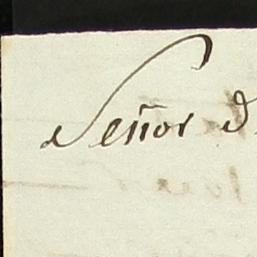 Señor D.